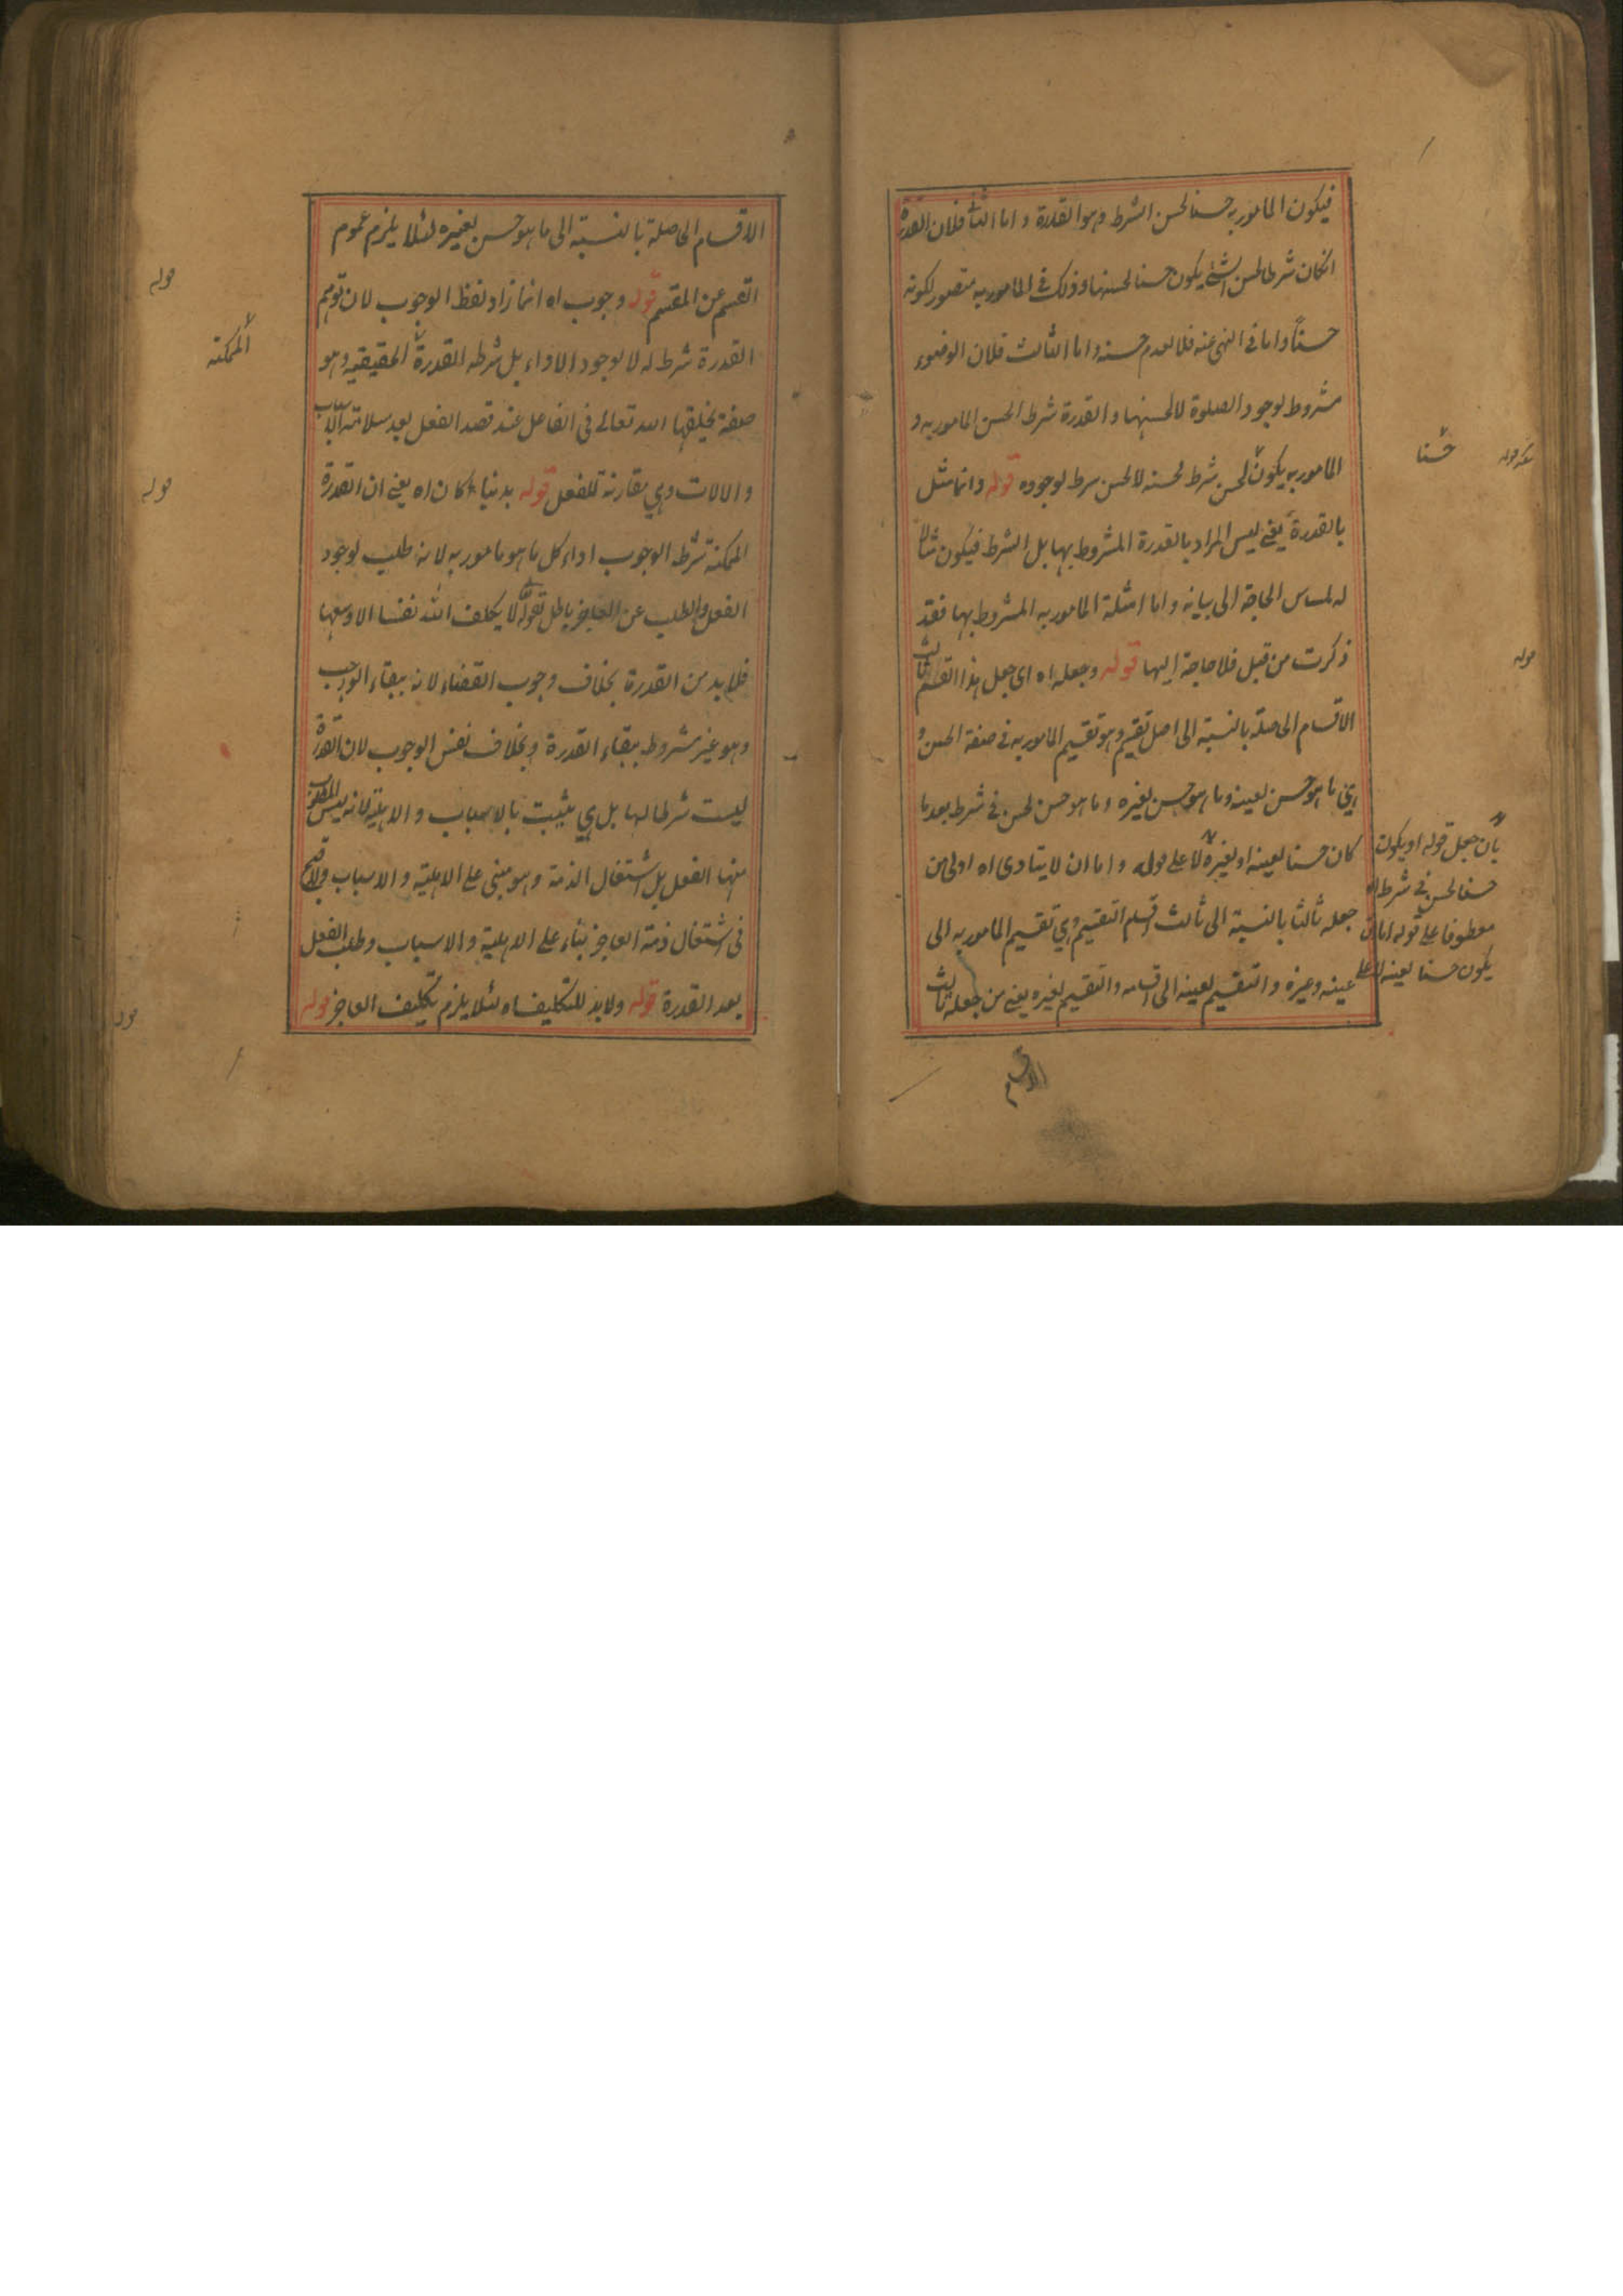 فيكون المامور به حسنا لحسن الشرط وهو القدرة و اما الثانى فلان القدرة
انكان شرطا لحسن الشئ يكون حسنا لحسنها وذلك فى المامور به متصور لكونه
حسنا واما فى النهى عنه فلا لعدم حسنه واما الثالث فلان الوضوء
مشروط لوجود الصلوة لا لحسنها و القدرة شرط الحسن المامور به و
المامور به يكون لحسن شرط لحسنه لا لحسن شرط لوجوده قوله وانما مثل
حسنا
بالقدرة يعنى ليس المراد بالقدرة المشروط بها بل الشرط فيكون مثالا
له لمساس الحاجة الى بيانه و اما امثلة المامور به المشروط بها فقد
ذكرت من قبل فلا حاجة اليها قوله وجعله اه اى جعل هذا القسم ثالث
قوله
الاقسام الحاصلة بالنسبة الى اصل تقسيم وهو تقسيم المامور به فى صفة الحسن و
هى ما هو حسن لعينه وما هو حسن لغيره وما هو حسن لحسن فى شرط بعد ما
كان حسنا لعينه او لغيره لا على قوله واما ان لا يتادى اه اولى من
جعله ثالثا بالنسبة الى ثالث اقسام التقسيم وهى تقسيم المامور به الى
عينه وغيره و التقسيم لعينه الى اقسامه والتقسيم لغيره يعنى من جعله ثالث
بان جعل قوله او يكون
حسنا لحسن فى شرط اه
معطوفا على قوله اما ان
يكون حسنا لعينه لا على
الاقسام
الاقسام الحاصلة بالنسبة الى ما هو حسن لغيره لئلا يلزم عموم
القسم عن المقسم قوله وجوب اه انما زاد لفظ الوجوب لان توهم
قوله
القدرة شرط له لا لوجود الاداء بل شرطه القدرة الحقيقية وهو
الممكنة
صفة يخلقها الله تعالى فى الفاعل عند قصد الفعل بعد سلامة الاسباب
والالات وهى مقارنة للفعل قوله بدنيا كان اه يعنى ان القدرة
قوله
الممكنة شرط الوجوب اداء كل ما هو مامور به لانه طلب لوجود
الفعل والطلب عن العاجز باطل لقوله لا يكلف الله نفسا الا وسعها
فلا بد من القدرة بخلاف وجوب القضاء لانه ببقاء الوجوب
وهو غير مشروط ببقاء القدرة وبخلاف نفس الوجوب لان القدرة
ليست شرطا لها بل هى يثبت بالاسباب و الاهلية لانه ليس المطلوب
منها الفعل بل اشتغال الذمة وهو مبنى على الاهلية و الاسباب ولا قبح
فى اشتغال ذمة العاجز بناء على الاهلية و الاسباب وطلب الفعل
بعد القدرة قوله ولا بد للتكليف اه لئلا يلزم تكليف العاجز قوله
قوله